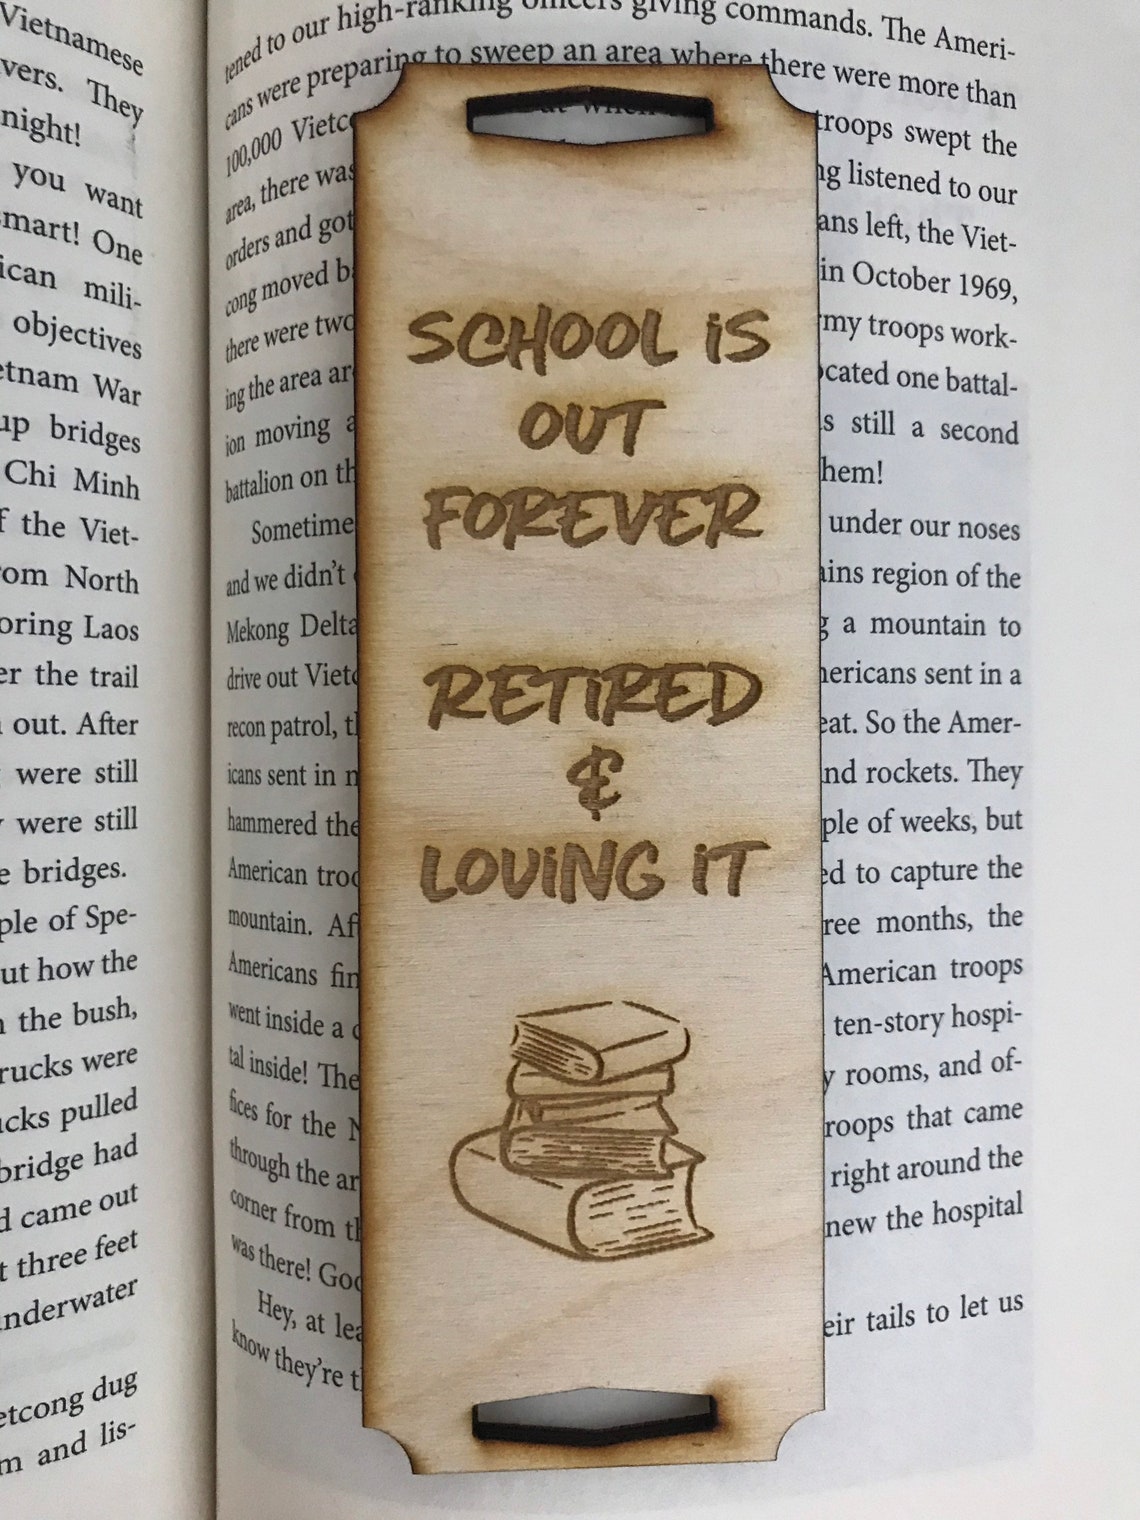 Vietnamese
vers. They
night!
you want
smart! One
ican mili-
objectives
etnam War
up bridges
Chi Minh
f the Viet-
rom North
oring Laos
er the trail
out. After
were still
were still
e bridges.
ple of Spe-
ut how the
the bush,
rucks were
cks pulled
bridge had
d came out
t three feet
nderwater
etcong dug
m and lis-
tened to our high-ranking officers giving commands. The Ameri-
cans were preparing to sweep an area where there were more than
100,000 Vietc troops swept the
area, there was ng listened to our
orders and got ans left, the Viet-
cong moved b in October 1969,
there were two my troops work-
ing the area ar ocated one battal-
ion moving s still a second
battalion on th hem!
Sometime under our noses
and we didn't ains region of the
Mekong Delta g a mountain to
drive out Vietc mericans sent in a
recon patrol, t eat. So the Amer-
icans sent in nd rockets. They
hammered the ple of weeks, but
American troo ed to capture the
mountain. Af ree months, the
Americans fin American troops
went inside a ten-story hospi-
tal inside! The y rooms, and of-
fices for the N roops that came
through the ar right around the
corner from th new the hospital
was there! Goo
Hey, at lea eir tails to let us
know they're t
SCHOOL IS
OUT
FOREVER
RETIRED
&
LOVING IT